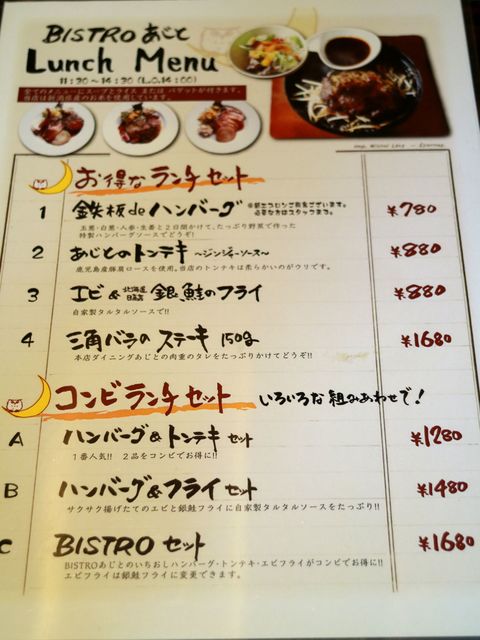 BISTRO あじと
Lunch Menu
11:30～14:30 (L.O.14:00)
全てのメニューにスープとライス または バゲットが付きます。
当店は新潟県産のお米を使用しています。
お得なランチセット
1 鉄板deハンバーグ ※紙エプロンご用意ございます。 ¥780
必要な方はスタッフまで。
玉葱・白葱・人参・生姜と2日間かけて、たっぷり野菜で作った
特製ハンバーグソースでどうぞ!
2 あじとのトンテキ ～ジンジャーソース～ ¥880
鹿児島産豚肩ロースを使用。当店のトンテキは柔らかいのがウリです。
3 エビ&北海道日高産銀鮭のフライ ¥880
自家製タルタルソースで!!
4 三角バラのステーキ 150g ¥1680
本店ダイニングあじとの肉重のタレをたっぷりかけてどうぞ!!
コンビランチセット いろいろな組みあわせで!
A ハンバーグ&トンテキ セット ¥1280
1番人気!! 2品をコンビでお得に!!
B ハンバーグ&フライ セット ¥1480
サクサク揚げたてのエビと銀鮭フライに自家製タルタルソースをたっぷり!!
C BISTRO セット ¥1680
BISTROあじとのいちおしハンバーグ・トンテキ・エビフライがコンビでお得に!!
エビフライは銀鮭フライに変更できます。